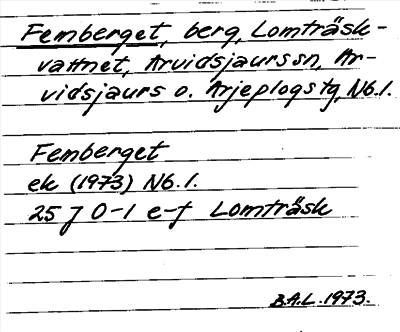 Femberget, berg, Lomträsk-
vattnet, Arvidsjaurs sn, Ar-
vidsjaurs o. Arjeplogs tg, Nb.l.
Femberget
ek (1973) Nb.l.
25 J 0-1 e-f Lomträsk
B.A.L. 1973.